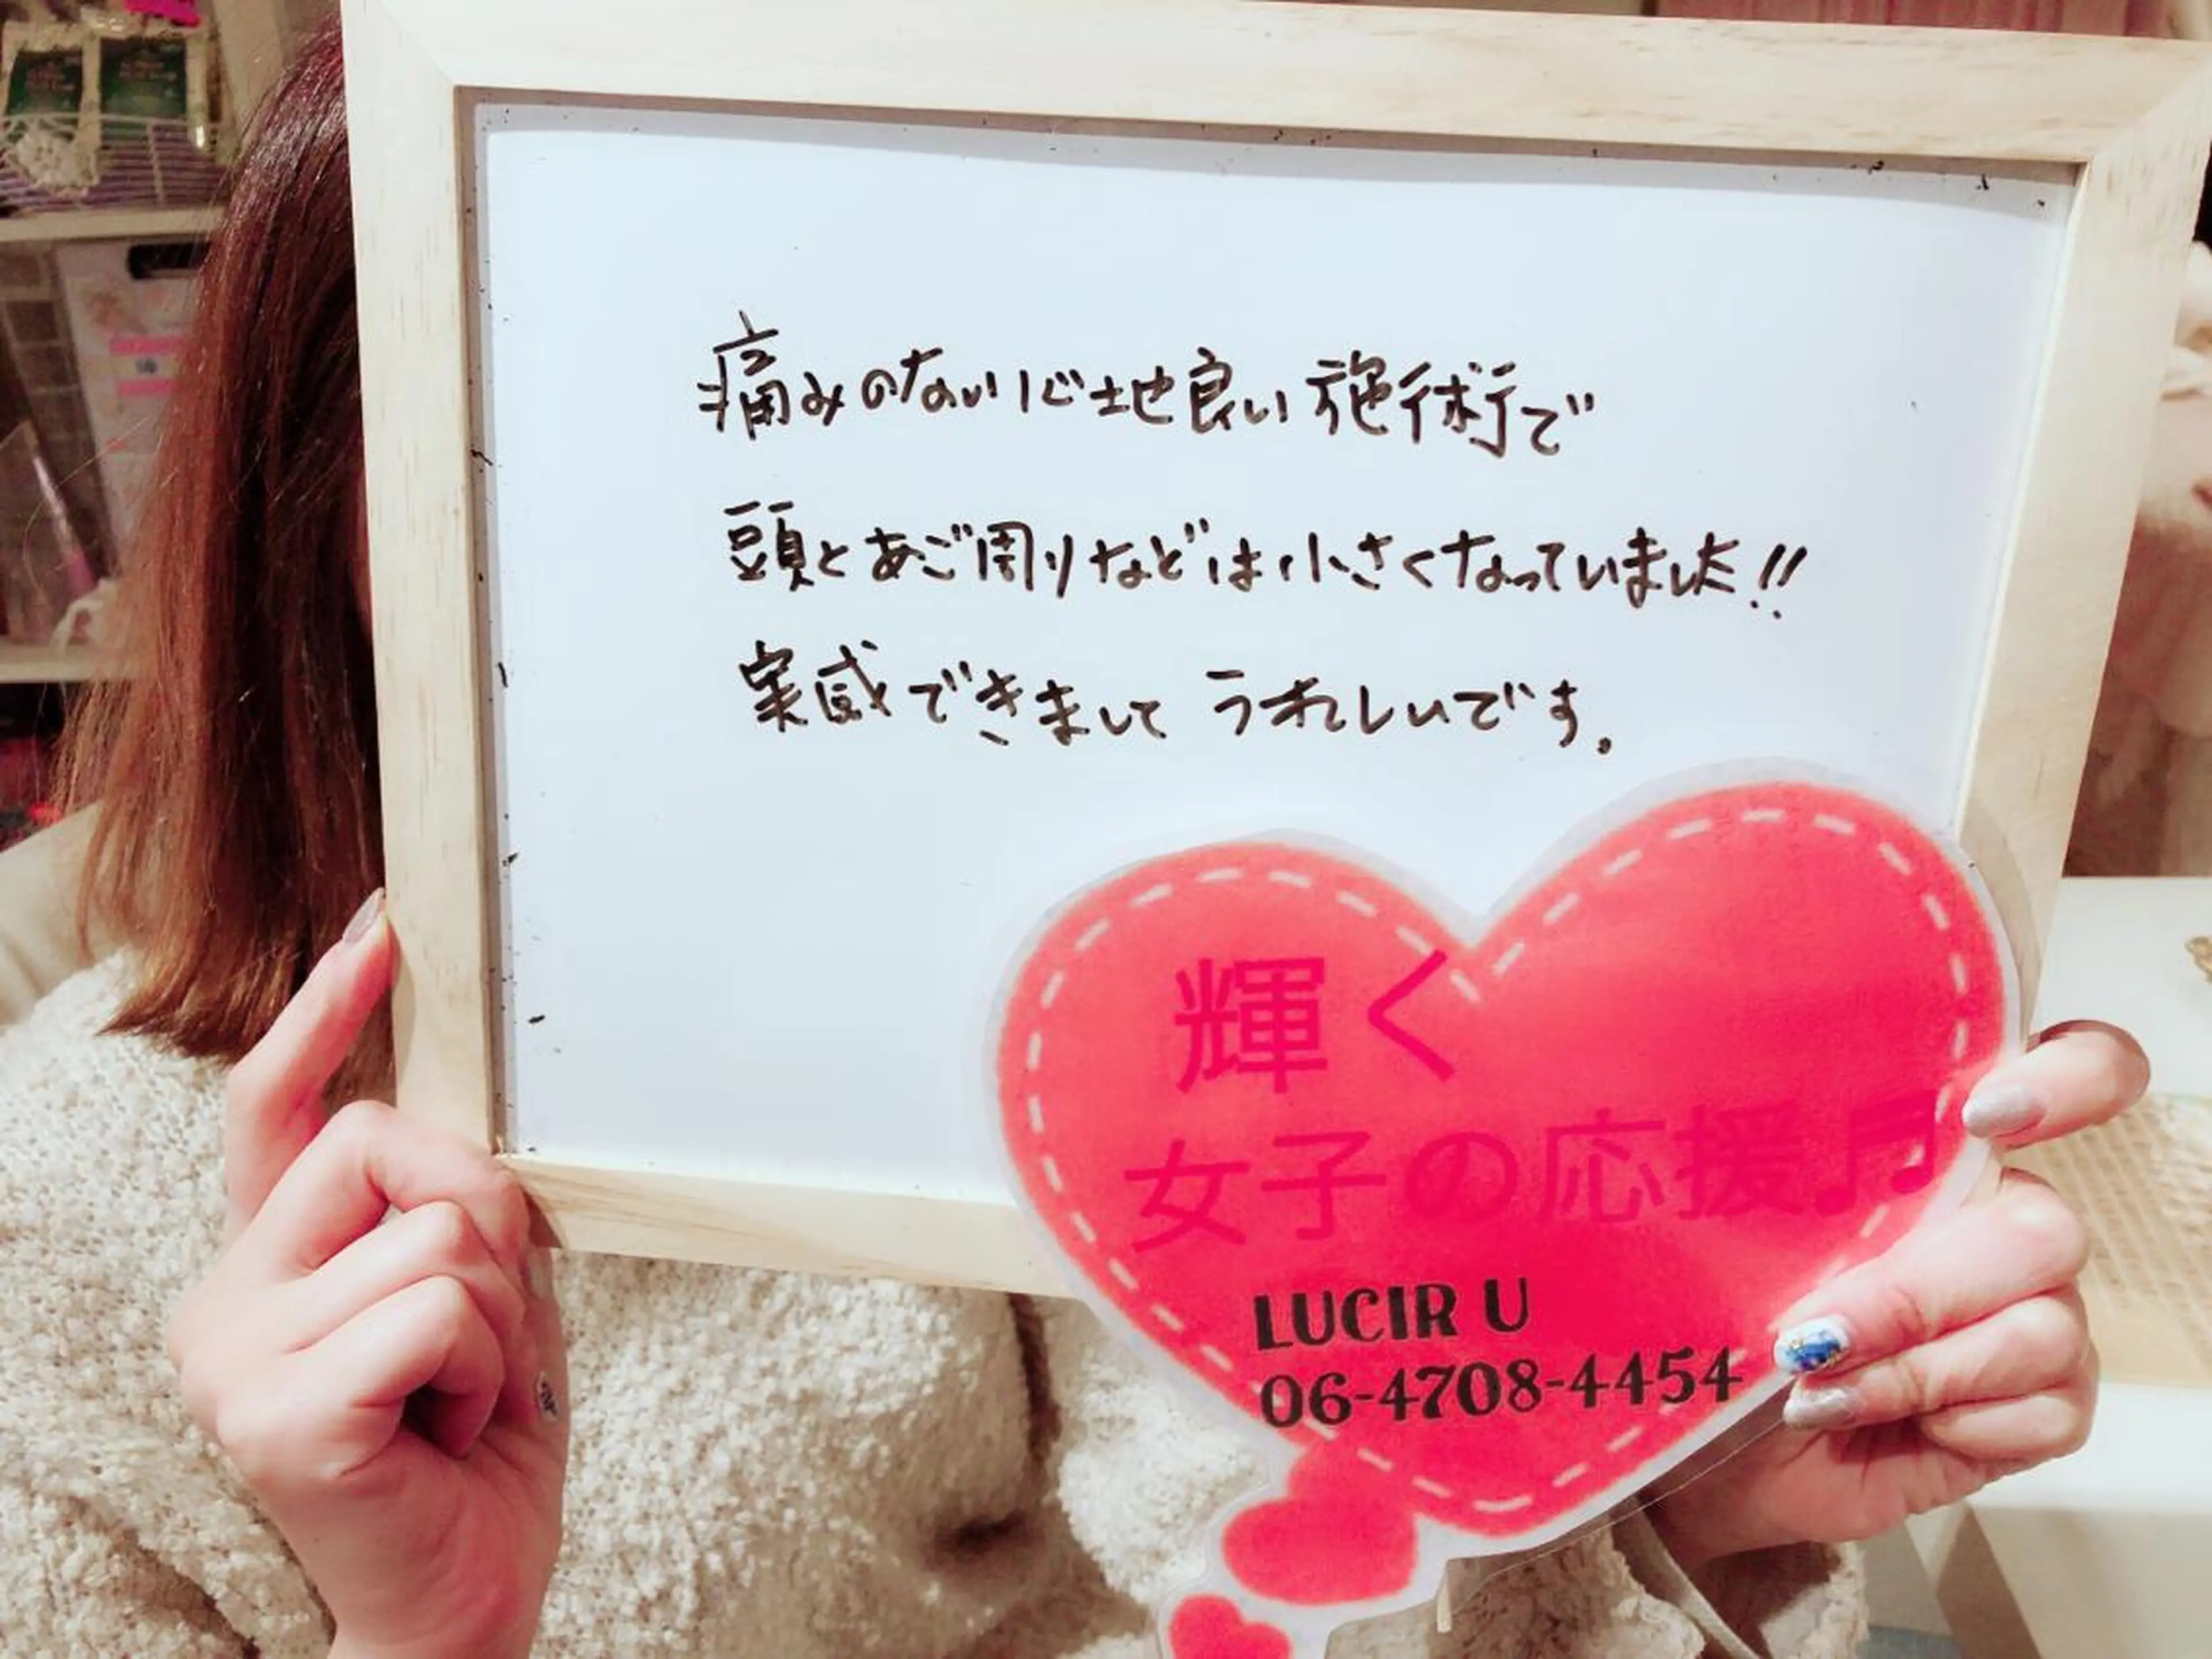 痛みのない心地良い施術で
頭とあご周りなどは小さくなっていました!!
実感できまして うれしいです。
輝く
女子の応援♬
LUCIR U
06-4708-4454